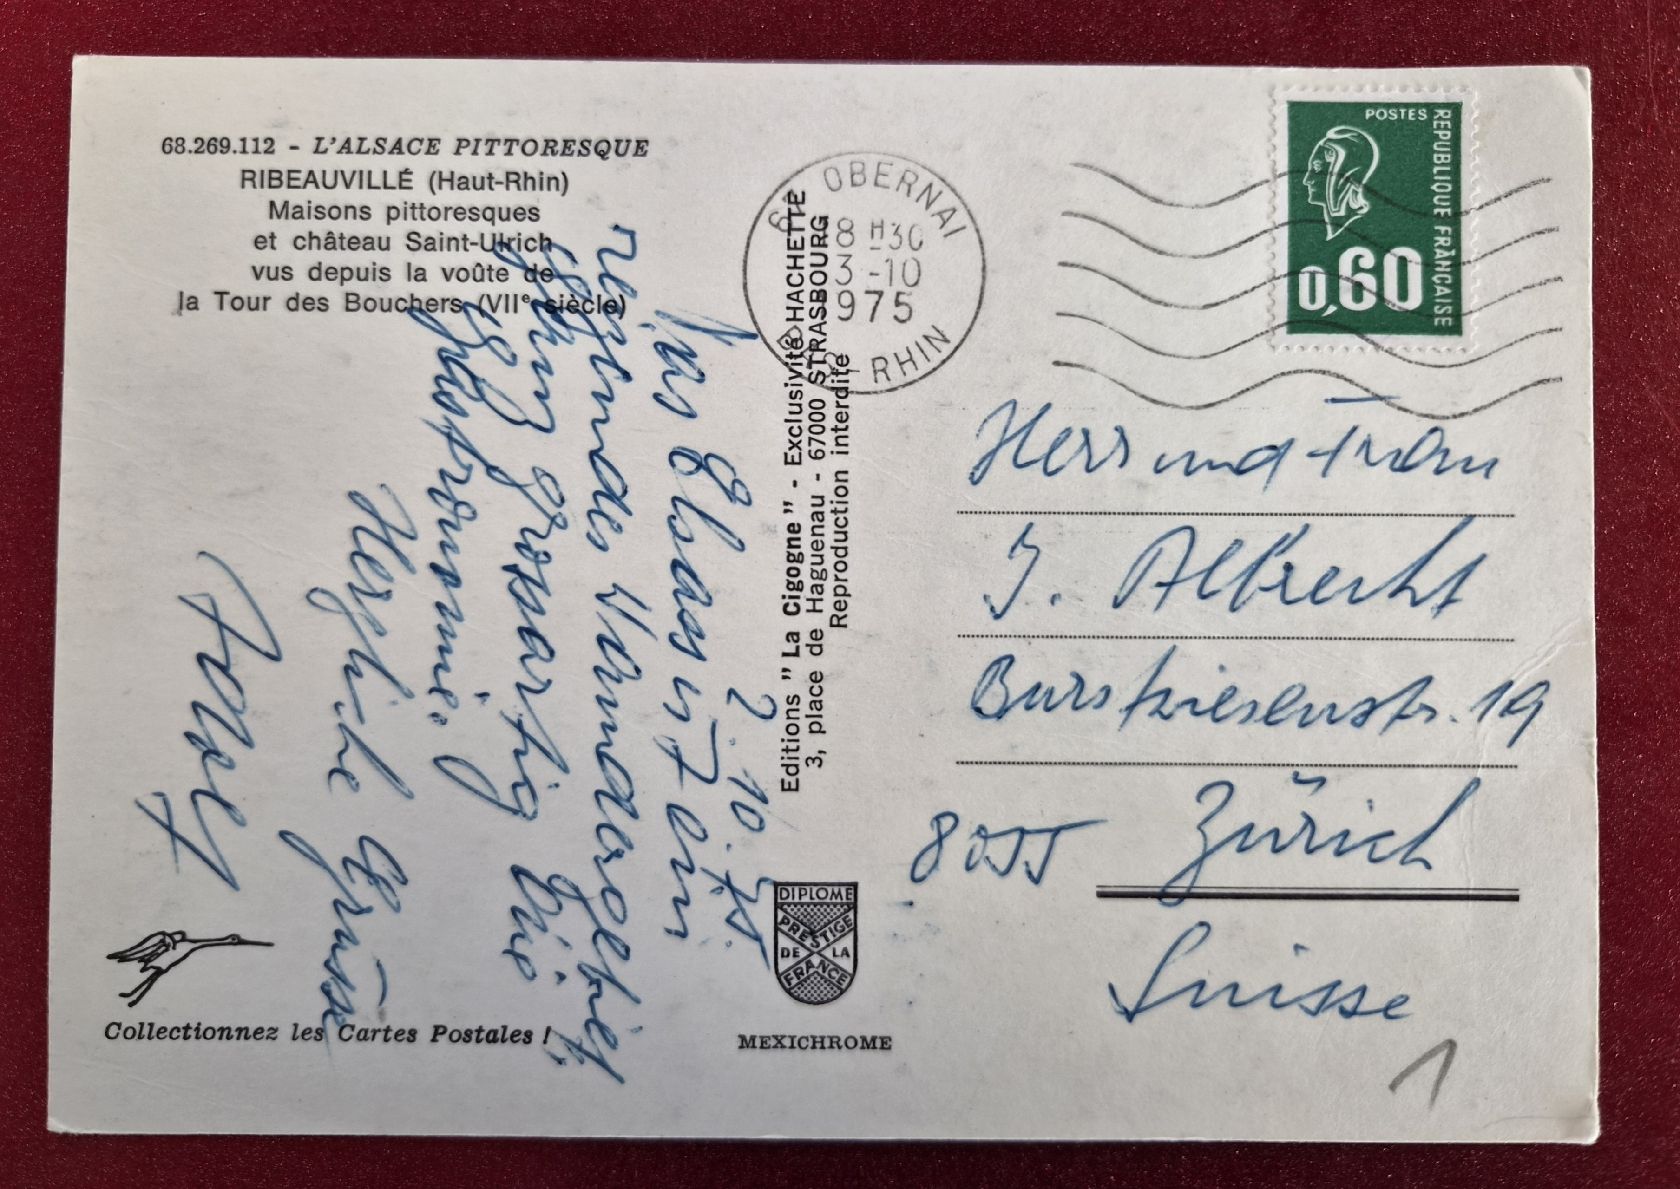 68.269.112 - L'ALSACE PITTORESQUE
RIBEAUVILLÉ (Haut-Rhin)
Maisons pittoresques
et château Saint-Ulrich
vus depuis la voûte de
la Tour des Bouchers (VIIe siècle)
2.10.75
Das Elsass ist ein
reizendes Wandergebiet,
grossartig die
Gastronomie.
Herzliche Grüsse
Adolf
Editions " La Cigogne " - Exclusivité HACHETTE
3, place de Haguenau - 67000 STRASBOURG
Reproduction interdite
67 OBERNAI
8 H30
3 -10
1975
BAS - RHIN
POSTES
REPUBLIQUE FRANÇAISE
0,60
Herr und Frau
J. Albrecht
Burstwiesenstr. 19
8055 Zürich
Suisse
1
DIPLOME
PRESTIGE
DE LA
FRANCE
MEXICHROME
Collectionnez les Cartes Postales !